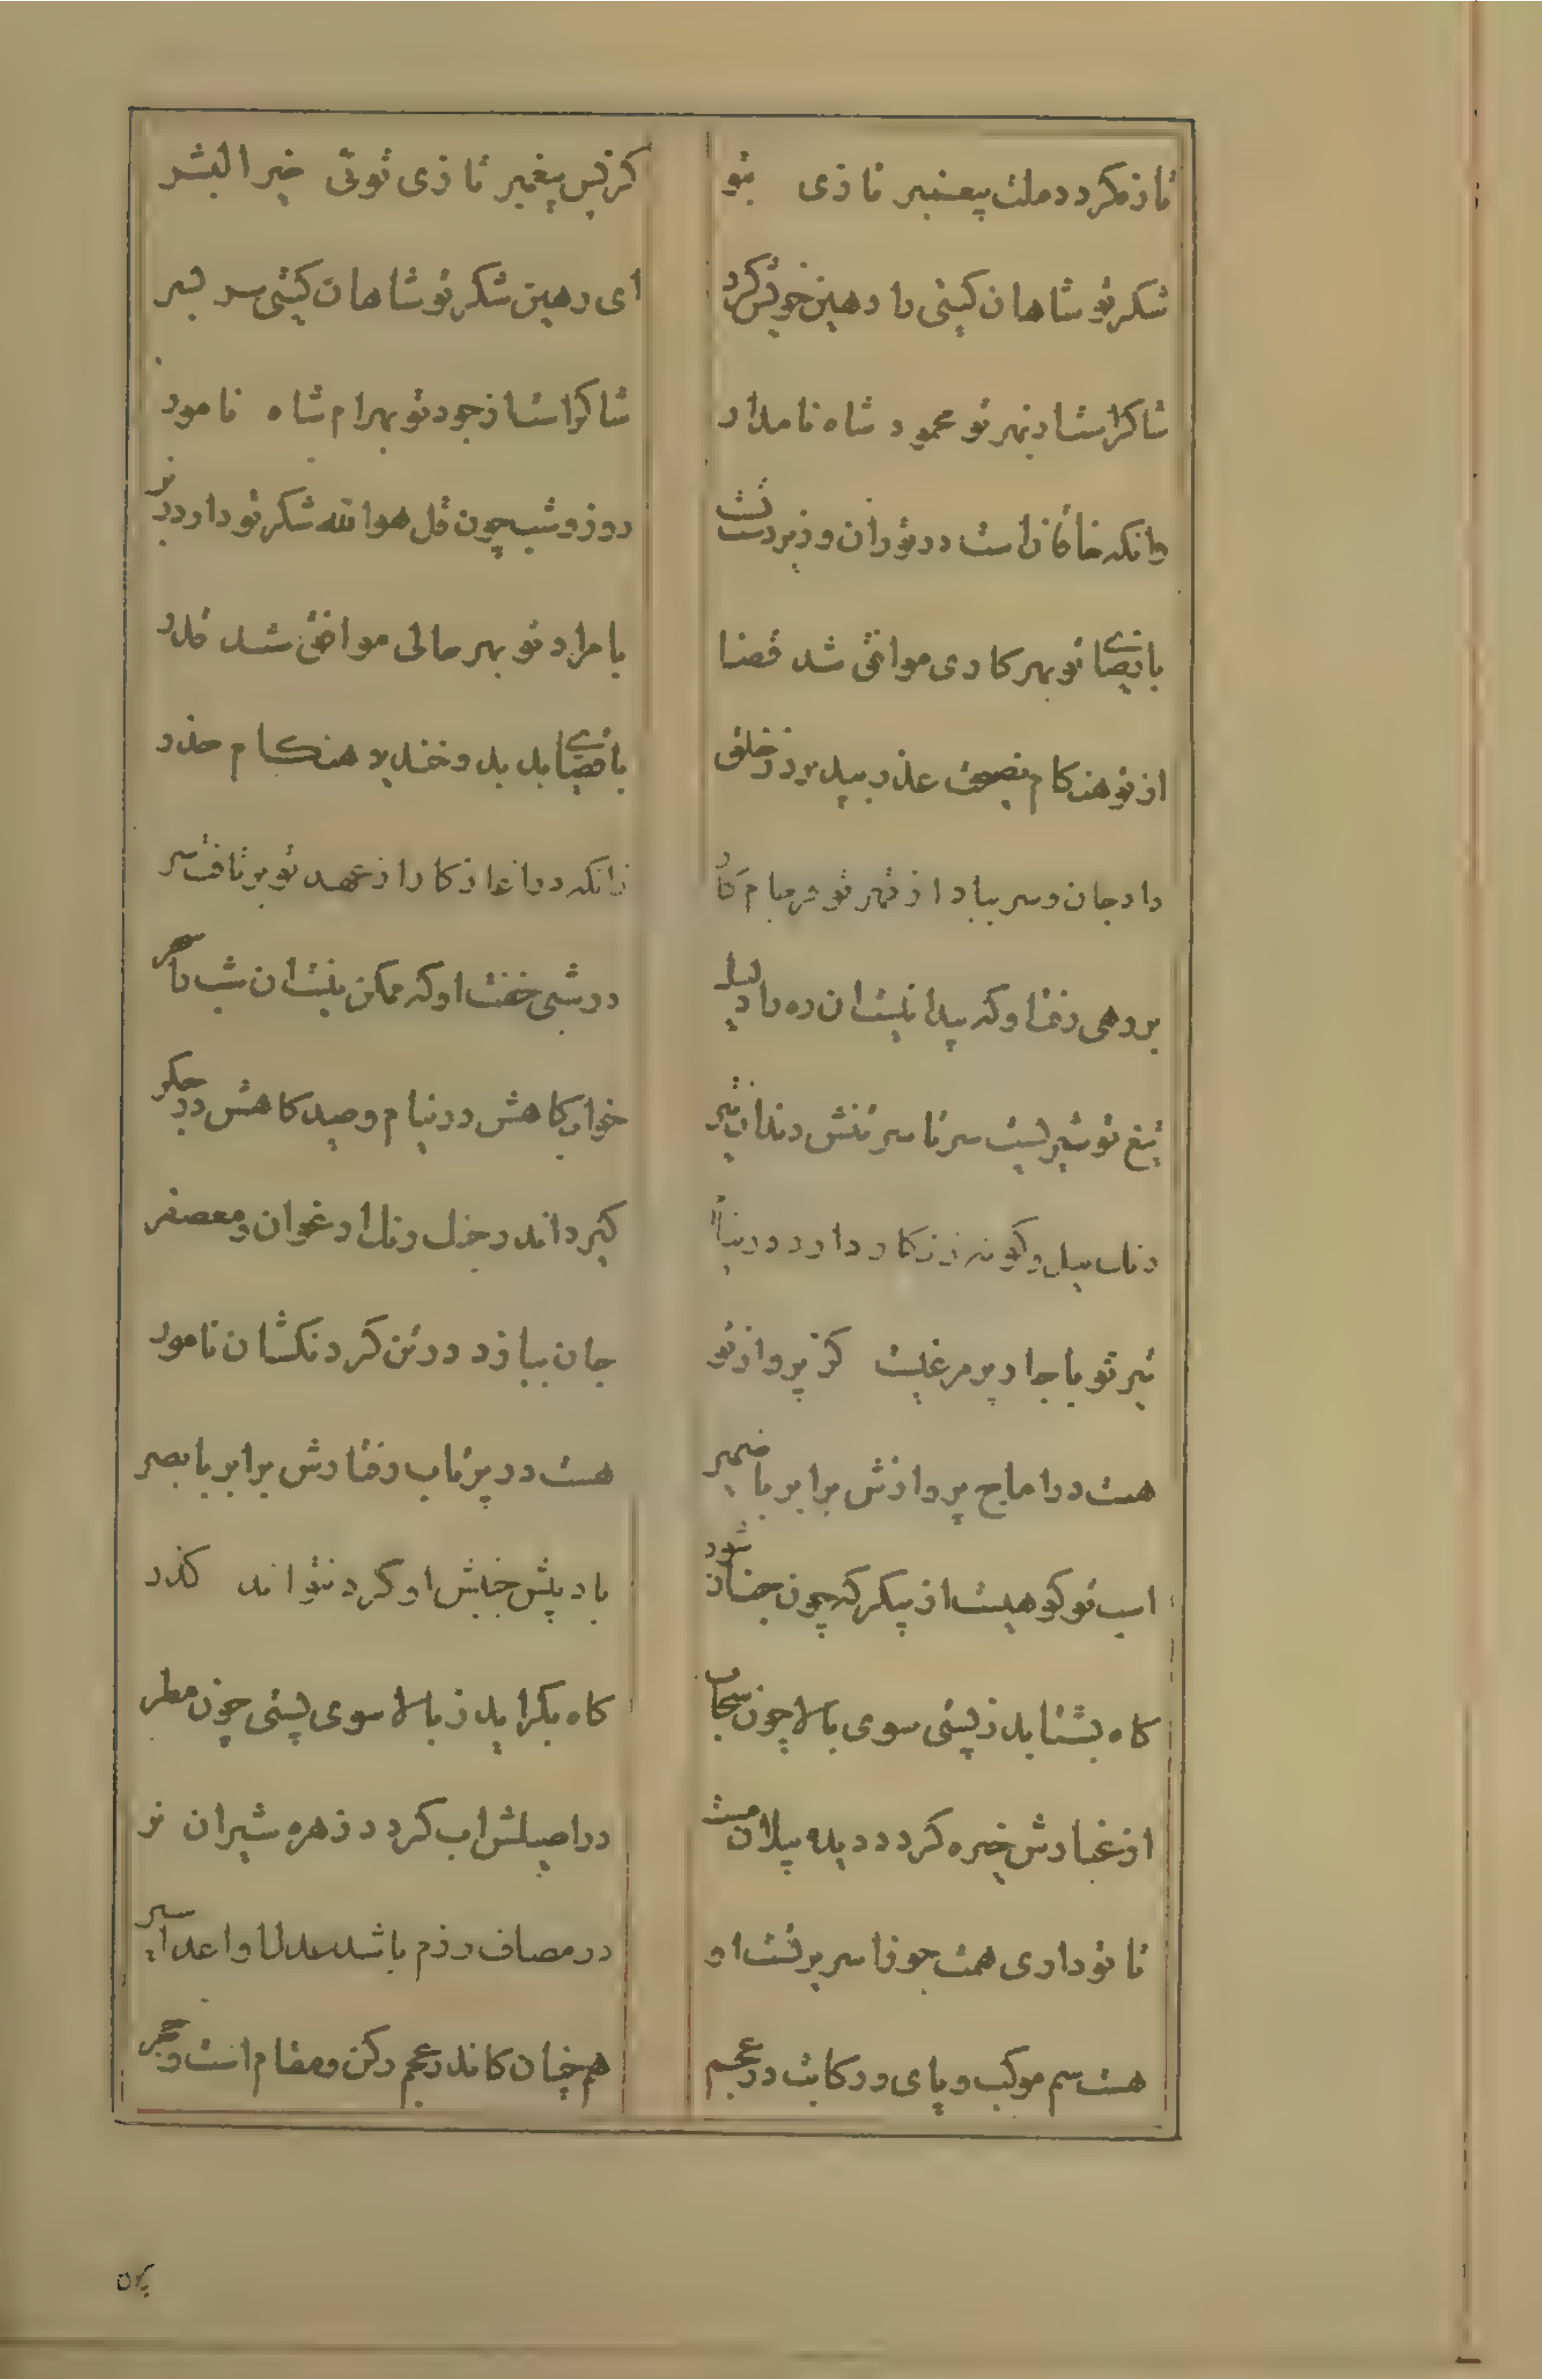 تازه کرد در ملت پیغمبر تازی بتو
کز پس پیغمبر تازی توئی خیر البشر
شکر تو شاهان گیتی را رهین خویش کرد
ای رهین شکر تو شاهان گیتی سر بسر
شاکر است از مهر تو محمود شاه نامدار
شاکر است از جود تو بهرام شاه نامور
وانکه خاقان است در توران و زیر دست تست
روز و شب چون قل هو الله شکر تو دارد ز بر
با رضای تو بهر کاری موافق شد قضا
با مراد تو بهر حالی موافق شد قدر
از تو هنکام نصیحت عذر بپذیرد ز خلق
با قضای بد بدو خندید هنکام حذر
داد جان و سر بباد از قهر تو فرجام کار
زانکه در آغاز کار از عهد تو برتافت سر
برهی رفت او که پیدا نیست آن ره را دلیل
در شبی خفت او که ممکن نیست آن شب را سحر
تیغ تو شیریست سر تا سر تنش دندان شیر
خوابکاهش در نیام و صیدکاهش در جکر
رنک نیل و کونه زنکار دارد در نیام
کیرد اندر جنک رنک ارغوان و معصفر
تیر تو با چار پر مرغیست کز پرواز تو
جان ببازد در تن کردنکشان نامور
هست در اماج پروازش برابر با ضمیر
هست در پرتاب رفتارش برابر با بصر
اسب تو کوهیست از پیکر که چون جنبان شود
باد پیش جنبش او کرد نتواند کذر
کاه بشتابد ز پستی سوی بالا چون سحاب
کاه بکراید ز بالا سوی پستی چون مطر
از غبارش خیره کردد دیده پیلان مست
در صهیلش اب کردد زهره شیران نر
تا تو داری همت جوزا سر بر نشت او
در مصاف و رزم باشد
هست سم موکب و پای و رکابت در عجم
هم چنان کاندر عجم رکن و مقام است و حجر
چون